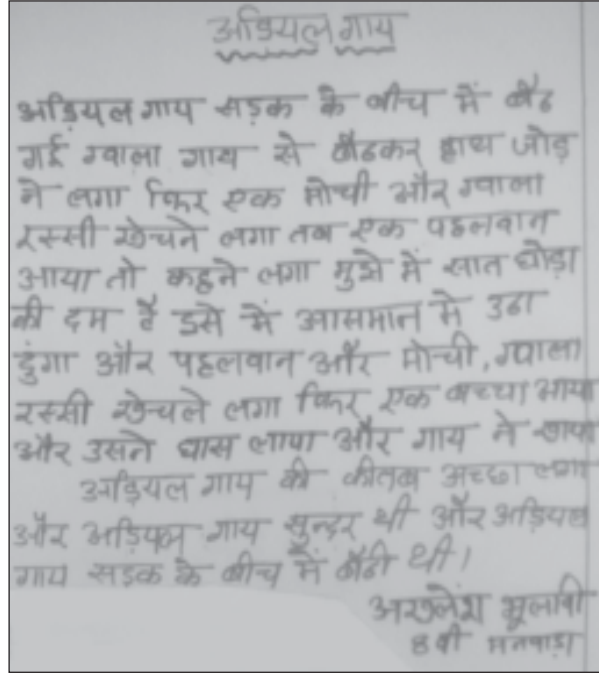 अडियल गाय
अड़ियल गाय सड़क के बीच में बैठ
गई ग्वाला गाय से बैठकर हाथ जोड़
ने लगा फिर एक मोची और ग्वाला
रस्सी खेचने लगा तब एक पहलवान
आया तो कहने लगा मुझे में सात घोड़ा
की दम है इसे में आसमान मे उठा
दुंगा और पहलवान और मोची, ग्वाला
रस्सी खेचले लगा फिर एक बच्चा आया
और उसने घास लाया और गाय ने खाया
अड़ियल गाय की कीतब अच्छा लगा
और अड़ियल गाय सुन्दर थी और अड़ियल
गाय सड़क के बीच में बैठी थी।
अखलेश
8 वी